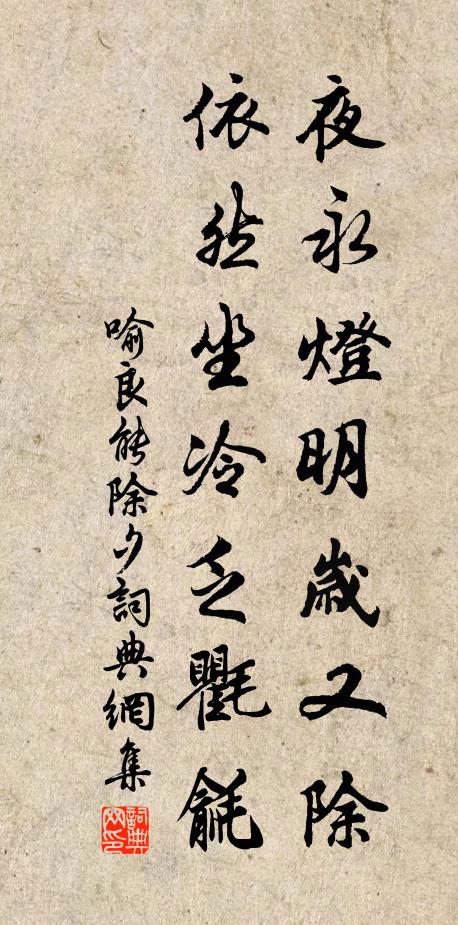 夜永燈明歲又除
依然坐冷乏氍毹
喻良能除夕詞典網集
詞典網印